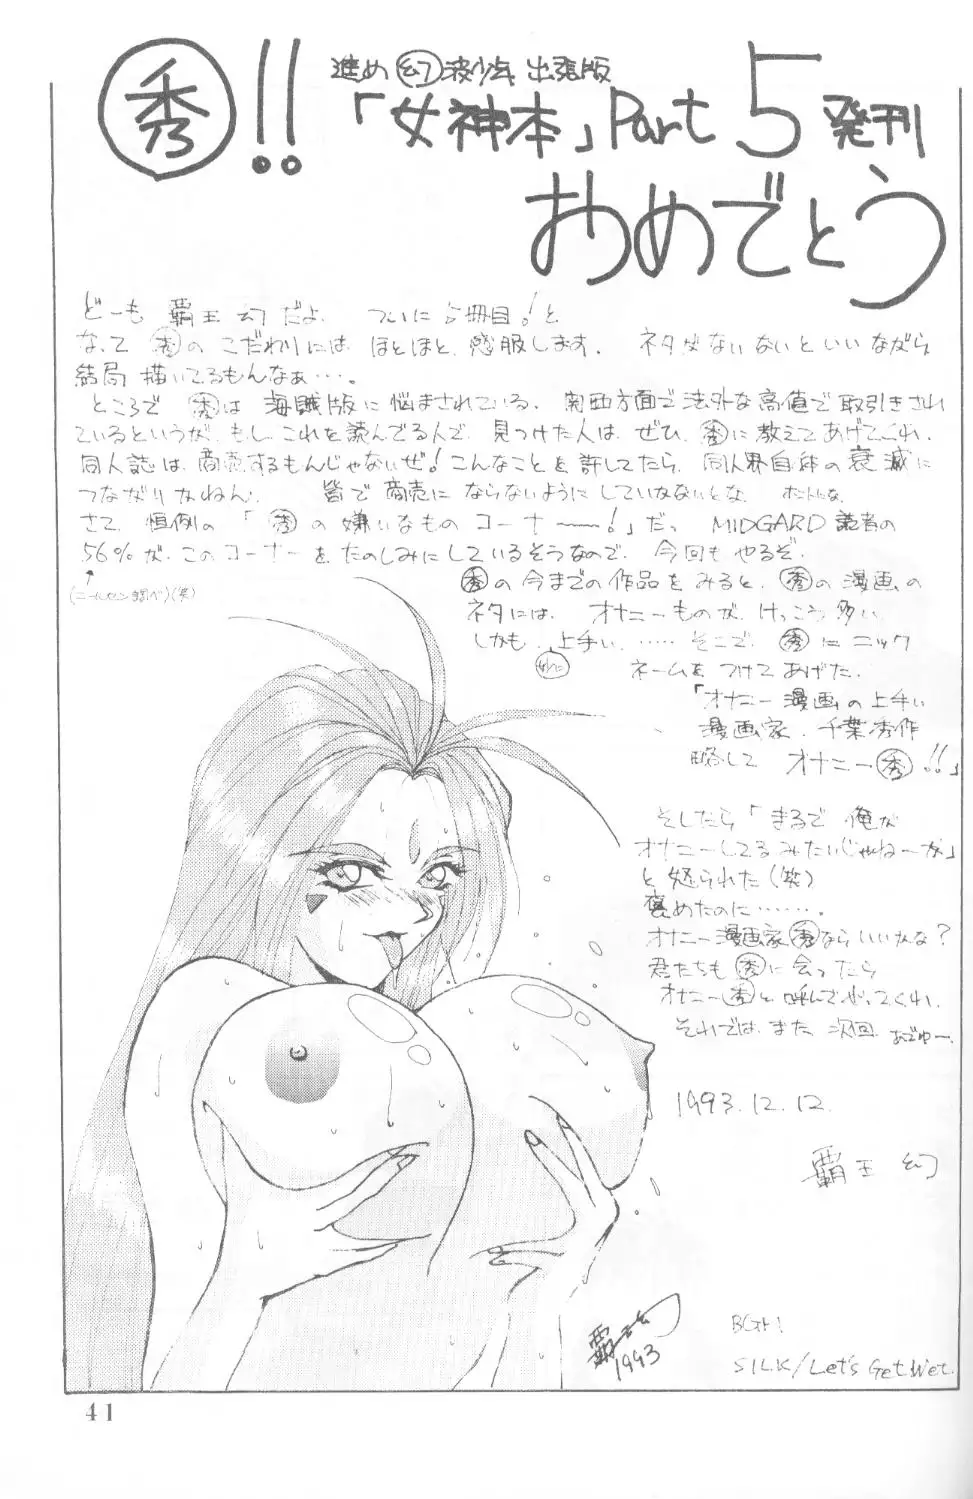 秀!!
進め 幻 波少年 出張版
「女神本」Part 5 発刊
おめでとう
どーも 覇王 幻 だよ. ついに5冊目!と
なって 秀のこだわりには ほとほと 感服します. ネタがないないといいながら
結局 描いてるもんなぁ….
ところで 秀は 海賊版に悩まされている. 関西方面で法外な高値で取引きされ
ているというが もし これを読んでる人で 見つけた人は ぜひ 秀に教えてあげてくれ.
同人誌は 商売するもんじゃないぜ! こんなことを 許してたら 同人界自体の衰滅に
つながりかねん. 皆で商売に ならないようにしていかないとな ホントにな.
さて 恒例の 「秀の嫌いなもの コーナー〜!」だっ MIDGARD 読者の
56%が このコーナーを たのしみにしているそうなので 今回も やるぞ.
(ニールセン調べ)(笑)
秀の今までの作品をみると 秀の漫画の
ネタには オナニーものが けっこう多い
しかも 上手い …… そこで 秀にニック
妙に
ネームを つけてあげた.
「オナニー漫画の上手い
漫画家 千葉秀作
略して オナニー秀!!」
そしたら「まるで 俺が
オナニーしてるみたいじゃねーか」
と怒られた(笑)
褒めたのに…….
オナニー漫画家秀ならいいかな?
君たちも 秀に会ったら
オナニー秀と呼んでやってくれ.
それでは また 次回 あでゅー.
1993.12.12.
覇王 幻
覇王幻
1993
BGM
SILK/Let's Get Wet.
41